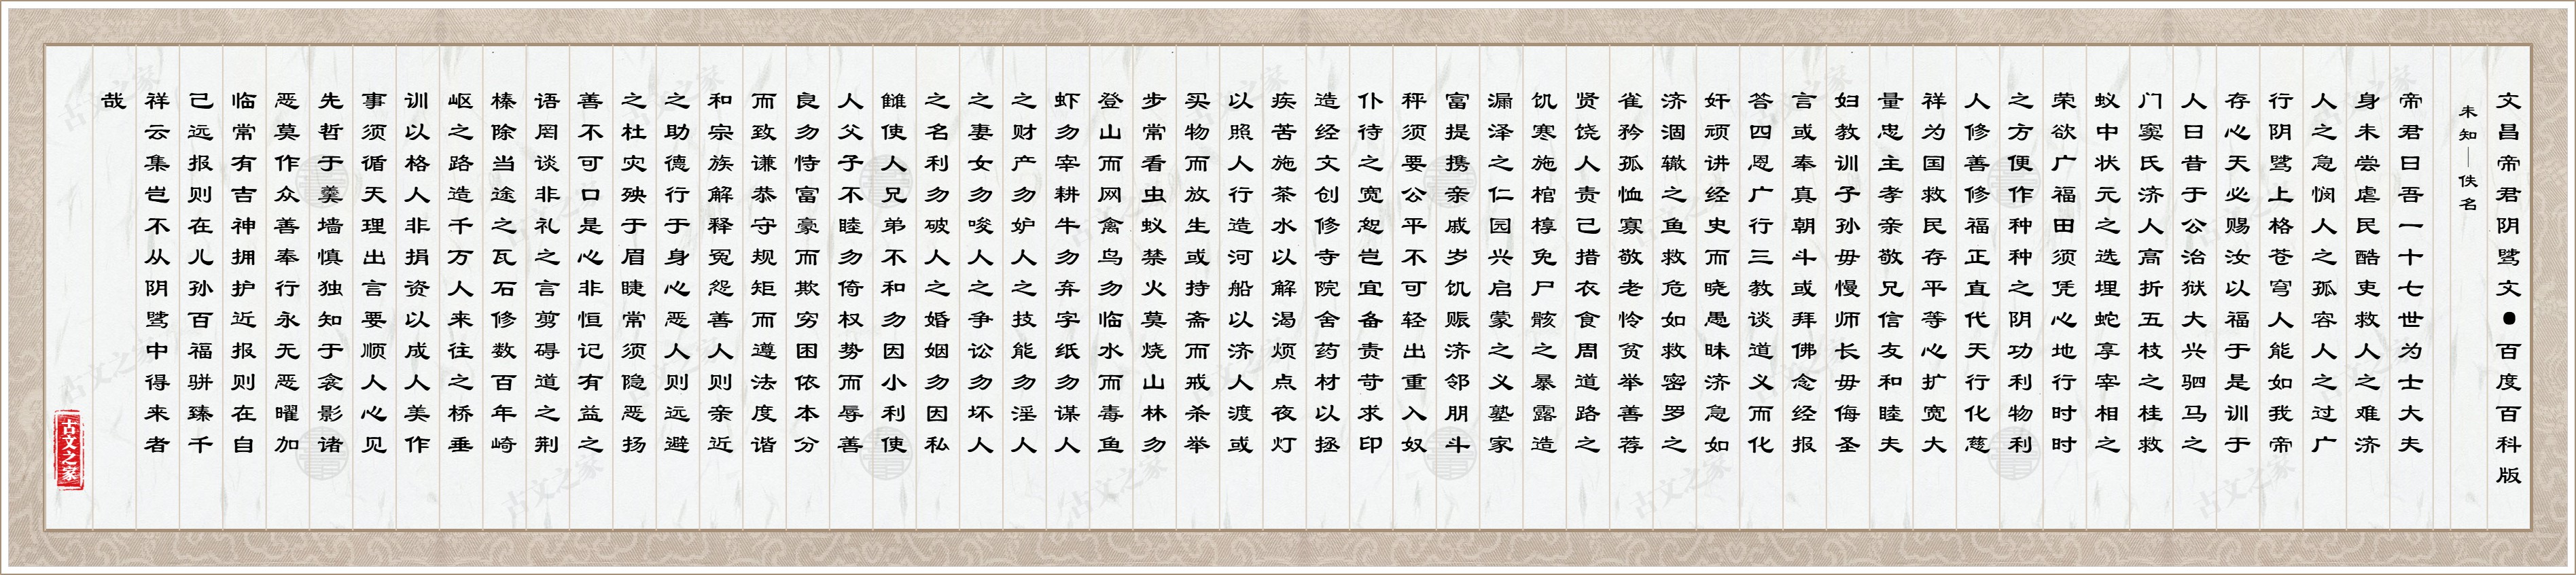 文昌帝君阴骘文●百度百科版
未知—佚名
帝君曰吾一十七世为士大夫
身未尝虐民酷吏救人之难济
人之急悯人之孤容人之过广
行阴骘上格苍穹人能如我帝
存心天必赐汝以福于是训于
人曰昔于公治狱大兴驷马之
门窦氏济人高折五枝之桂救
蚁中状元之选埋蛇享宰相之
荣欲广福田须凭心地行时时
之方便作种种之阴功利物利
人修善修福正直代天行化慈
祥为国救民存平等心扩宽大
量忠主孝亲敬兄信友和睦夫
妇教训子孙毋慢师长毋侮圣
言或奉真朝斗或拜佛念经报
答四恩广行三教谈道义而化
奸顽讲经史而晓愚昧济急如
济涸辙之鱼救危如救密罗之
雀矜孤恤寡敬老怜贫举善荐
贤饶人责己措衣食周道路之
饥寒施棺椁免尸骸之暴露造
漏泽之仁园兴启蒙之义塾家
富提携亲戚岁饥赈济邻朋斗
秤须要公平不可轻出重入奴
仆待之宽恕岂宜备责苛求印
造经文创修寺院舍药材以拯
疾苦施茶水以解渴烦点夜灯
以照人行造河船以济人渡或
买物而放生或持斋而戒杀举
步常看虫蚁禁火莫烧山林勿
登山而网禽鸟勿临水而毒鱼
虾勿宰耕牛勿弃字纸勿谋人
之财产勿妒人之技能勿淫人
之妻女勿唆人之争讼勿坏人
之名利勿破人之婚姻勿因私
雠使人兄弟不和勿因小利使
人父子不睦勿倚权势而辱善
良勿恃富豪而欺穷困依本分
而致谦恭守规矩而遵法度谐
和宗族解释冤怨善人则亲近
之助德行于身心恶人则远避
之杜灾殃于眉睫常须隐恶扬
善不可口是心非恒记有益之
语罔谈非礼之言剪碍道之荆
榛除当途之瓦石修数百年崎
岖之路造千万人来往之桥垂
训以格人非捐资以成人美作
事须循天理出言要顺人心见
先哲于羹墙慎独知于衾影诸
恶莫作众善奉行永无恶曜加
临常有吉神拥护近报则在自
己远报则在儿孙百福骈臻千
祥云集岂不从阴骘中得来者
哉
古文之家